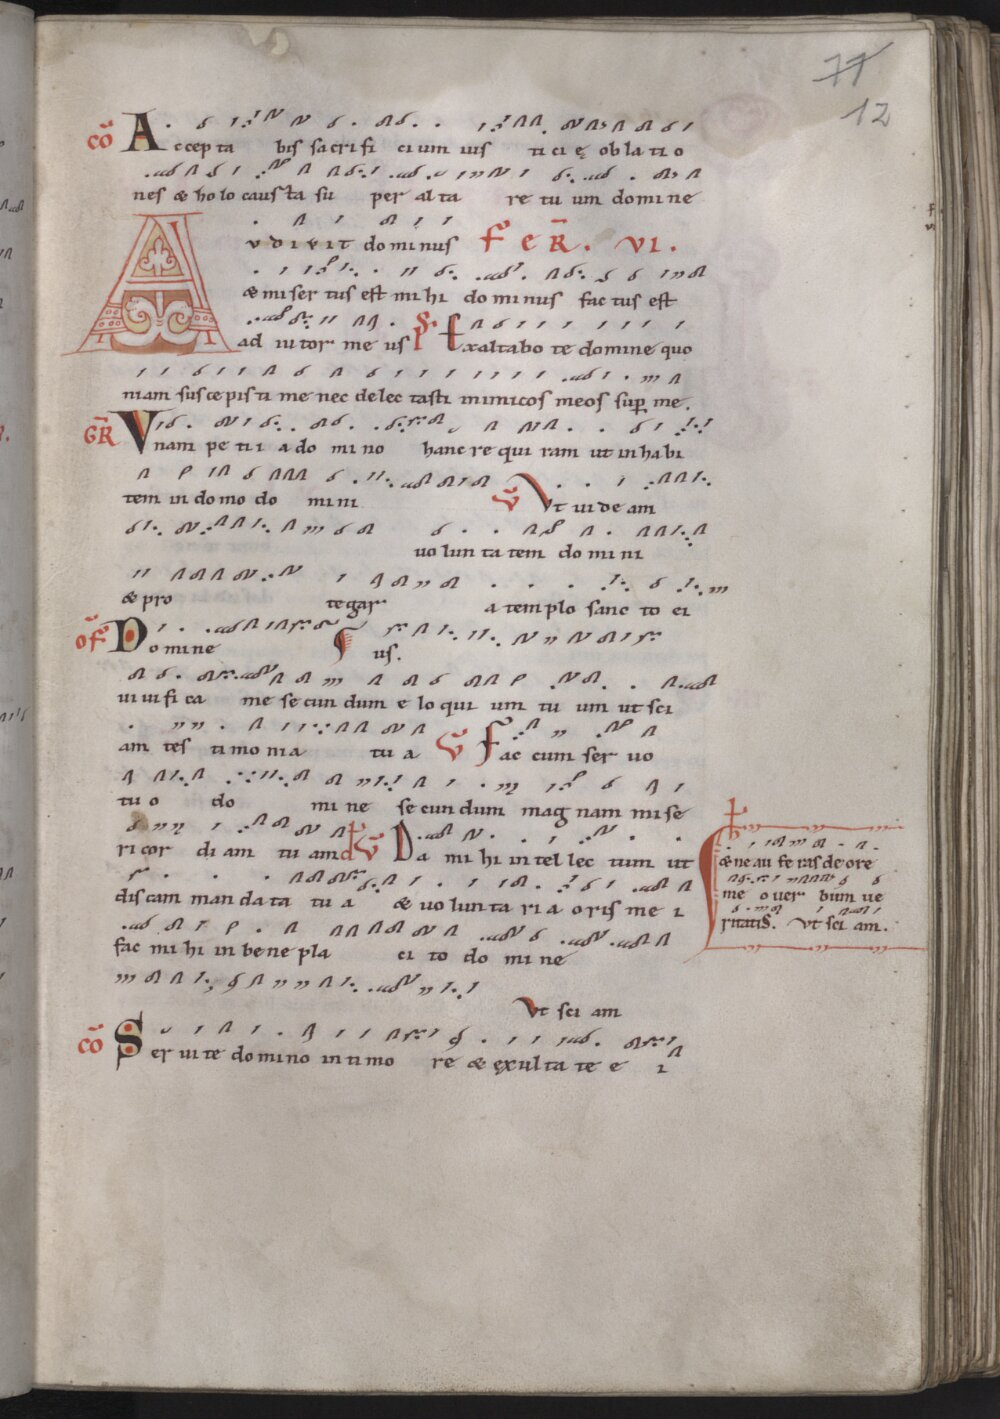 77
12
cō Accepta bis sacrifi cium ius ti cię oblatio
nes & ho lo causta su per alta re tu um domine
Audivit dominus FER. VI.
& miser tus est mihi dominus factus est
ad iutor me us ps Exaltabo te domine quo
niam suscepisti me nec delectasti inimicos meos sup me.
GR Vnam pe tii a do mino hanc re qui ram ut inhabi
tem in do mo do mini v Vt uide am
uo lun ta tem domini
& pro tegar a templo sanc to ei
of Domine us.
ui uifi ca me secundum e lo qui um tu um ut sci
am tes timonia tu a v Fac cum ser uo
tu o do mi ne secundum mag nam mise
ricor di am tu am v Da mihi intel lec tum ut
discam mandata tu a & uo lunta ri a oris me i
fac mihi in bene pla ci to do mi ne
Vt sci am
cō Ser uite domino in timo re & ęxulta te e i
& ne au feras de ore
me o uer bum ue
ritatis. Vt sci am.